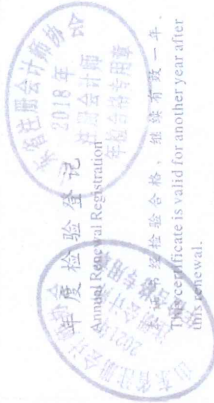 年度检验登记
Annual Renewal Registration
本证书经检验合格，继续有效一年。
This certificate is valid for another year after
this renewal.
东省注册会计师协会
2018年
注册会计师
年检合格专用章
山东省注册会计师
2021年